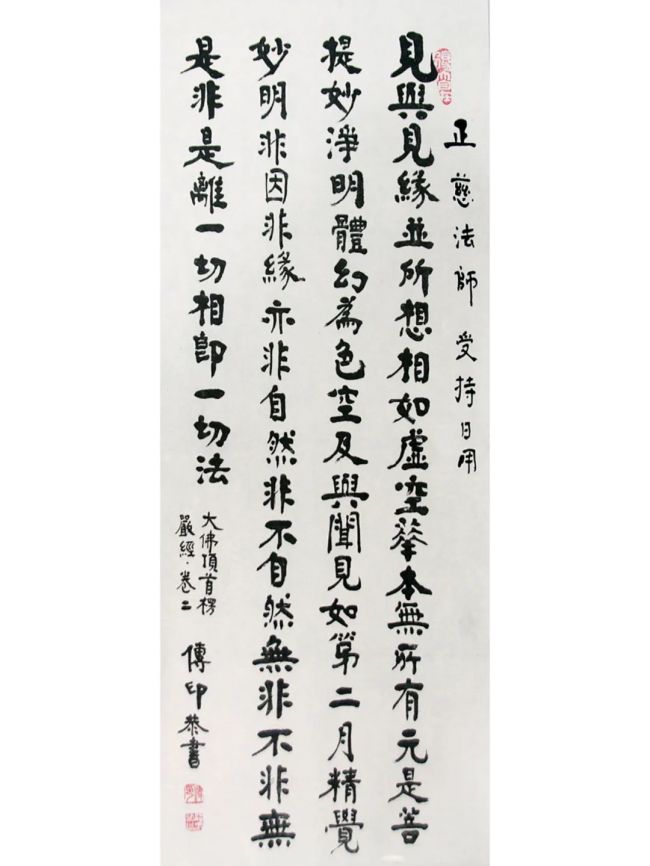 正慈法師 受持日用
見與見緣並所想相如虛空華本無所有元是菩
提妙淨明體幻為色空及與聞見如第二月精覺
妙明非因非緣亦非自然非不自然無非不非無
是非是離一切相即一切法
大佛頂首楞
嚴經·卷二
傳印恭書